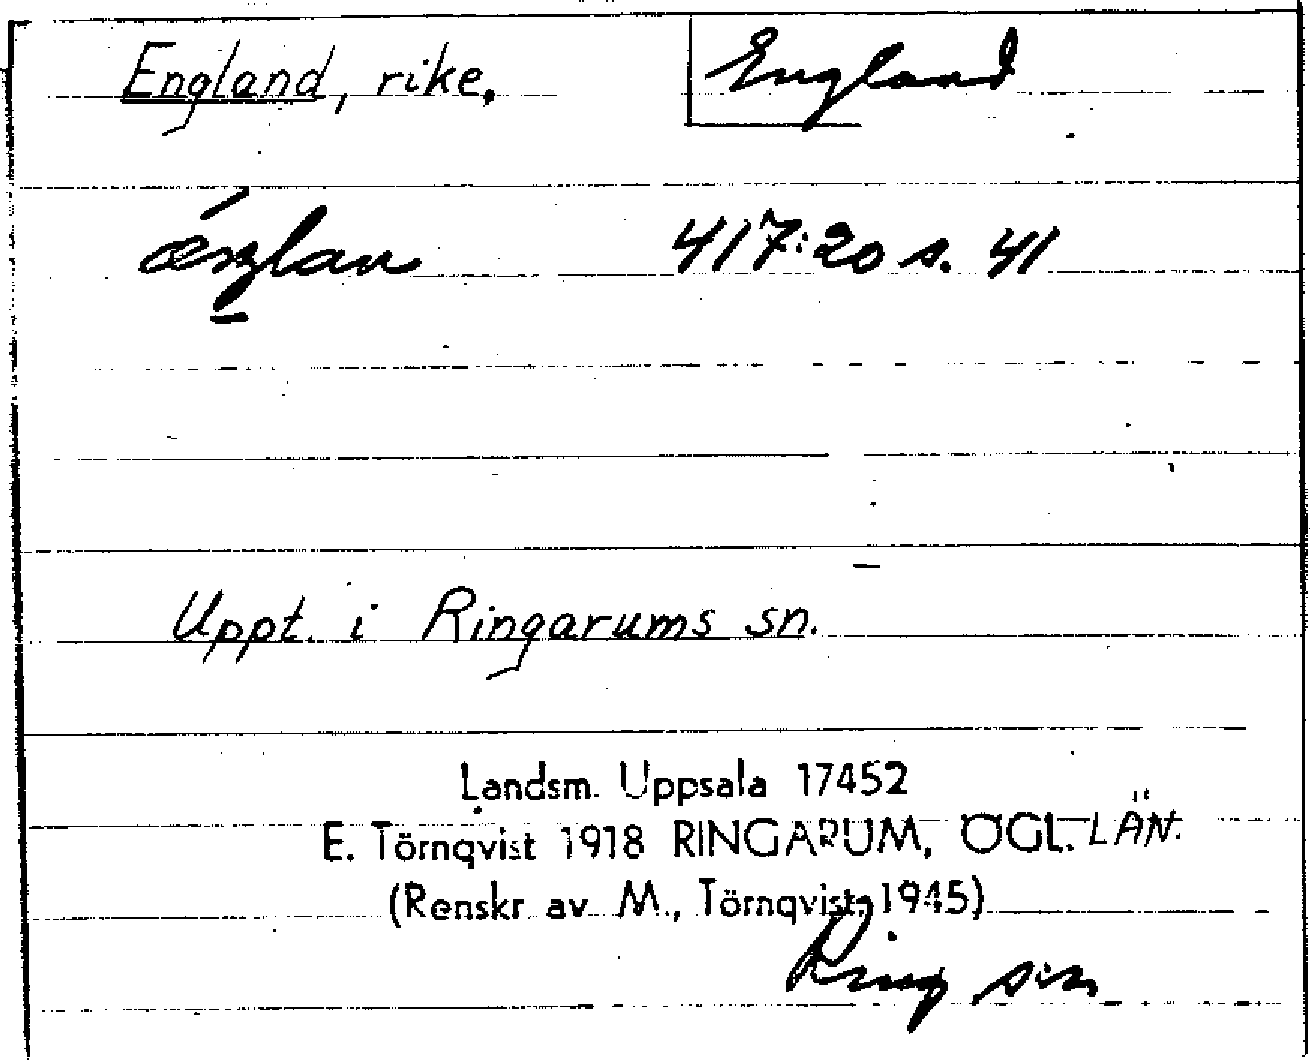 England, rike, England
417:20 s. 41
Uppt. i Ringarums sn.
Landsm. Uppsala 17452
E. Törnqvist 1918 RINGARUM, ÖGL. LÄN.
(Renskr. av M. Törnqvist, 1945)
Ring